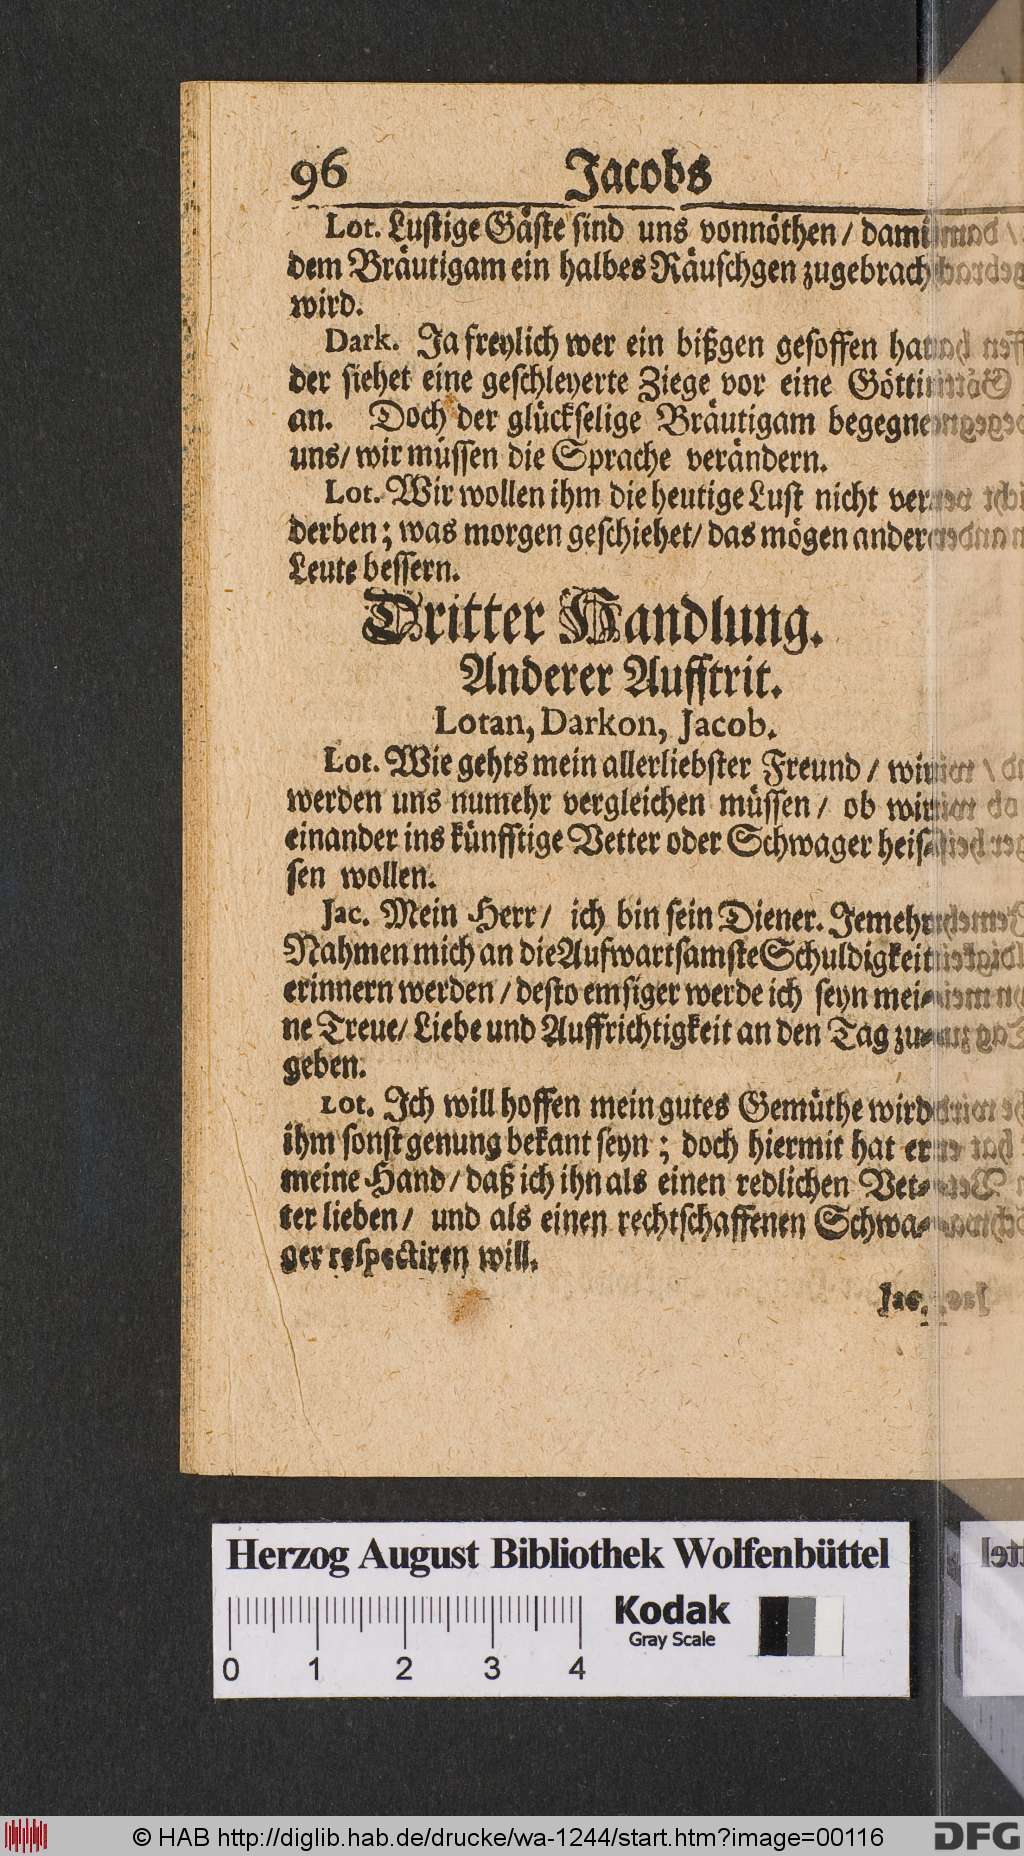 96 Jacobs
Lot. Lustige Gäste sind uns vonnöthen / damit
dem Bräutigam ein halbes Räuschgen zugebracht
wird.
Dark. Ja freylich wer ein bißgen gesoffen hat
der siehet eine geschleyerte Ziege vor eine Göttin
an. Doch der glückselige Bräutigam begegnet
uns/ wir müssen die Sprache verändern.
Lot. Wir wollen ihm die heutige Lust nicht ver-
derben; was morgen geschiehet/ das mögen andere
Leute bessern.
Dritter Handlung.
Anderer Aufftrit.
Lotan, Darkon, Jacob.
Lot. Wie gehts mein allerliebster Freund / wir
werden uns numehr vergleichen müssen / ob wir
einander ins künfftige Vetter oder Schwager heis-
sen wollen.
Jac. Mein Herr / ich bin sein Diener. Jemehr
Nahmen mich an die Aufwartsamste Schuldigkeit
erinnern werden / desto emsiger werde ich seyn mei-
ne Treue/ Liebe und Auffrichtigkeit an den Tag zu-
geben.
Lot. Ich will hoffen mein gutes Gemüthe wird
ihm sonst genung bekant seyn ; doch hiermit hat er
meine Hand / daß ich ihn als einen redlichen Vet-
ter lieben / und als einen rechtschaffenen Schwa-
ger respectiren will.
Jac.
Herzog August Bibliothek Wolfenbüttel
Kodak
Gray Scale
0 1 2 3 4
© HAB http://diglib.hab.de/drucke/wa-1244/start.htm?image=00116
DFG